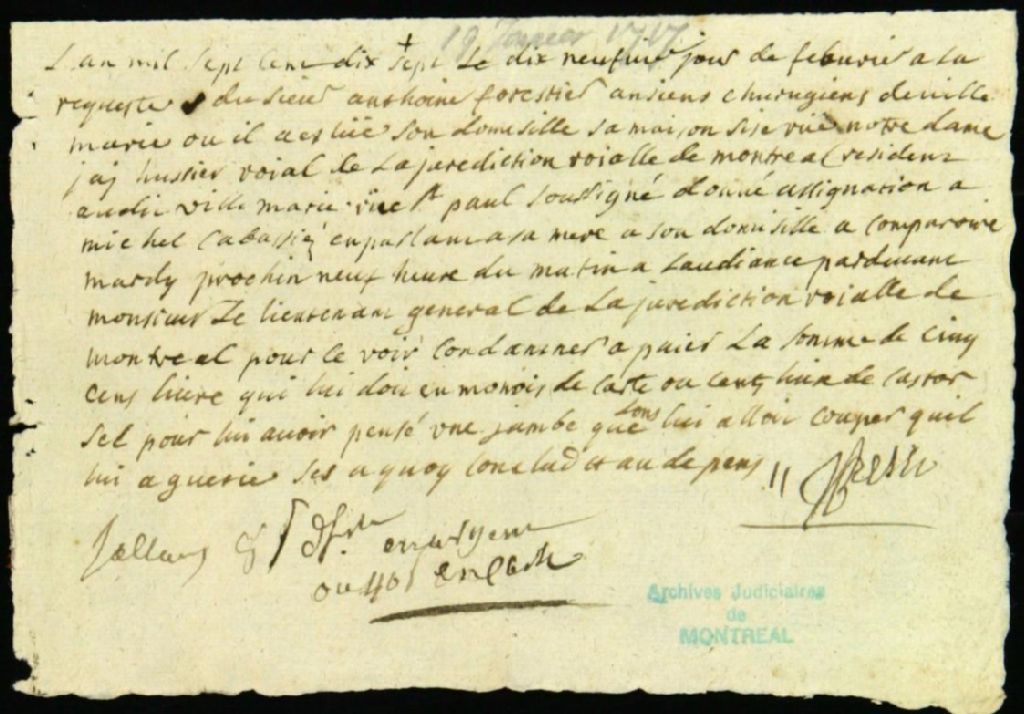 19 Janvier 1717
Lan mil sept cent dix sept Le dix neufvie jour de febvrier a la
requeste du sieur anthoine forestier ansiens chirugiens deville
marie ou il a eslië son domisille sa maison sise rüe notre dame
jaj hussier roial de La jurediction roialle de montreal resident
audit ville marie rüe st paul soussigné donné assignation a
michel Cabassiéj enparlant a sa mere a son domisille a comparoire
mardy prochin neuf heure du matin a Laudiance pardevant
monsieur Le lieutenant general de La jurediction roialle de
montreal pour le voir condamner a paier La somme de cinq
cens livre qui lui doit en monois de carte ou cent livre de castor
sel pour lui avoir pensé une jambe que Lons lui alloit couper quil
lui a guerie ses a quoy conclud et au depens
en argent
ou 40 en carte
Archives Judiciaires
de
MONTREAL